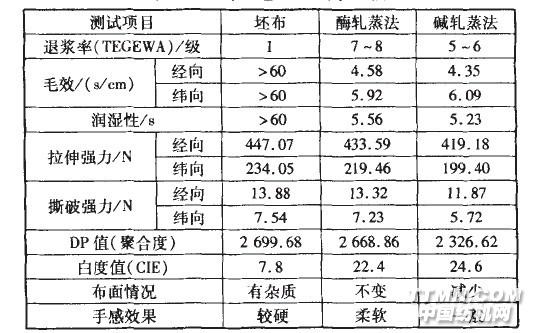 测试项目 坯布 酶轧蒸法 碱轧蒸法
退浆率(TEGEWA)/级 1 7~8 5~6
毛效/(s/cm) 经向 >60 4.58 4.35
纬向 >60 5.92 6.09
润湿性/s >60 5.56 5.23
拉伸强力/N 经向 447.07 433.59 419.18
纬向 234.05 219.46 199.40
撕破强力/N 经向 13.88 13.32 11.87
纬向 7.54 7.23 5.72
DP值(聚合度) 2 699.68 2 668.86 2 326.62
白度值(CIE) 7.8 22.4 24.6
布面情况 有杂质 不变 减少
手感效果 较硬 柔软
TTMN.COM
中国纺机网